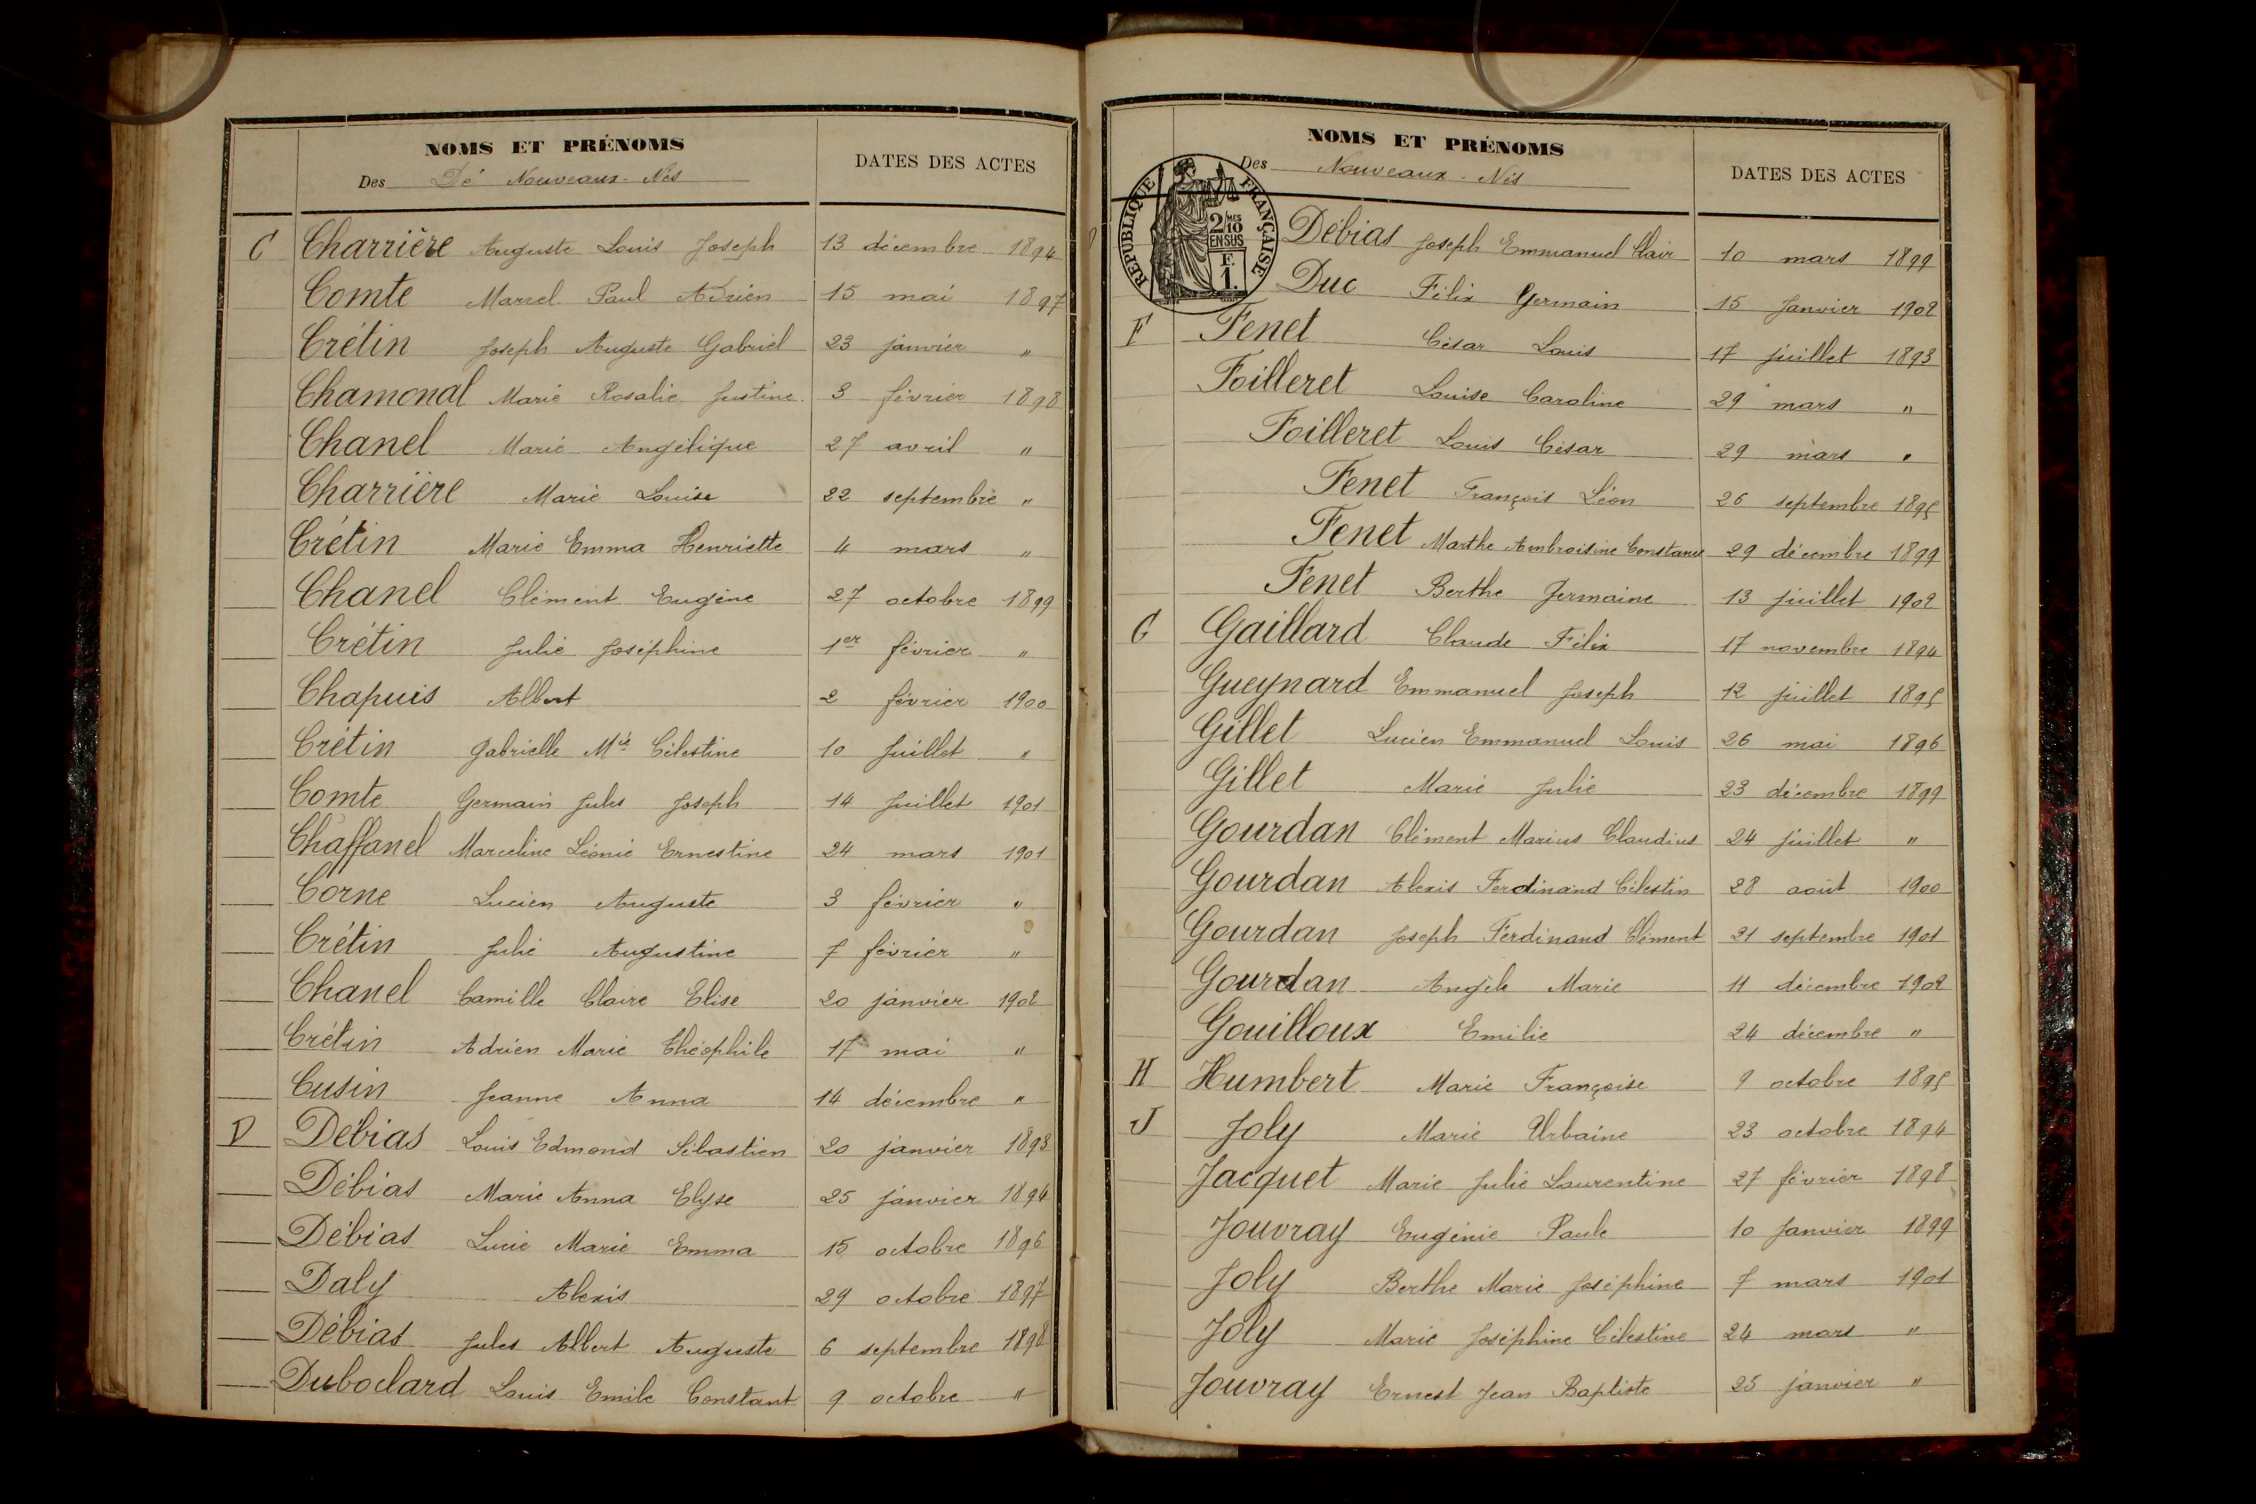 NOMS ET PRÉNOMS
DATES DES ACTES
Des Dé Nouveaux-Nés
C Charrière Auguste Louis Joseph 13 décembre 1894
Comte Marcel Paul Adrien 15 mai 1897
Crétin Joseph Auguste Gabriel 23 janvier "
Chamonal Marie Rosalie Justine 3 février 1898
Chanel Marie Angélique 27 avril "
Charrière Marie Louise 22 septembre "
Crétin Marie Emma Henriette 4 mars "
Chanel Clément Eugène 27 octobre 1899
Crétin Julie Joséphine 1er février "
Chapuis Albert 2 février 1900
Crétin Gabrielle Mie Célestine 10 Juillet "
Comte Germain Jules Joseph 14 Juillet 1901
Chaffanel Marceline Léonie Ernestine 24 mars 1901
Corne Lucien Auguste 3 février "
Crétin Julie Augustine 7 février "
Chanel Camille Claire Elise 20 janvier 1902
Crétin Adrien Marie Théophile 17 mai "
Cusin Jeanne Anna 14 décembre "
D Débias Louis Edmond Sébastien 20 janvier 1893
Débias Marie Anna Elyse 25 janvier 1894
Débias Lucie Marie Emma 15 octobre 1896
Daly Alexis 29 octobre 1897
Débias Jules Albert Auguste 6 septembre 1898
Duboclard Louis Emile Constant 9 octobre "
NOMS ET PRÉNOMS
DATES DES ACTES
Des Nouveaux-Nés
RÉPUBLIQUE FRANÇAISE
2/10MES
EN SUS
F.
1.
Débias Joseph Emmanuel Clair 10 mars 1899
Duc Félix Germain 15 Janvier 1902
F Fenet César Louis 17 juillet 1893
Foilleret Louise Caroline 29 mars "
Foilleret Louis César 29 mars "
Fenet François Léon 26 septembre 1895
Fenet Marthe Ambroisine Constance 29 décembre 1899
Fenet Berthe Germaine 13 juillet 1902
G Gaillard Claude Félix 17 novembre 1894
Gueynard Emmanuel Joseph 12 juillet 1895
Gillet Lucien Emmanuel Louis 26 mai 1896
Gillet Marie Julie 23 décembre 1899
Gourdan Clément Marius Claudius 24 juillet "
Gourdan Alexis Ferdinand Célestin 28 août 1900
Gourdan Joseph Ferdinand Clément 21 septembre 1901
Gourdan Angèle Marie 11 décembre 1902
Gouilloux Emilie 24 décembre "
H Humbert Marie Françoise 9 octobre 1895
J Joly Marie Urbaine 23 octobre 1894
Jacquet Marie Julie Laurentine 27 février 1898
Jouvray Eugénie Paule 10 Janvier 1899
Joly Berthe Marie Joséphine 7 mars 1901
Joly Marie Joséphine Célestine 24 mars "
Jouvray Ernest Jean Baptiste 25 janvier "